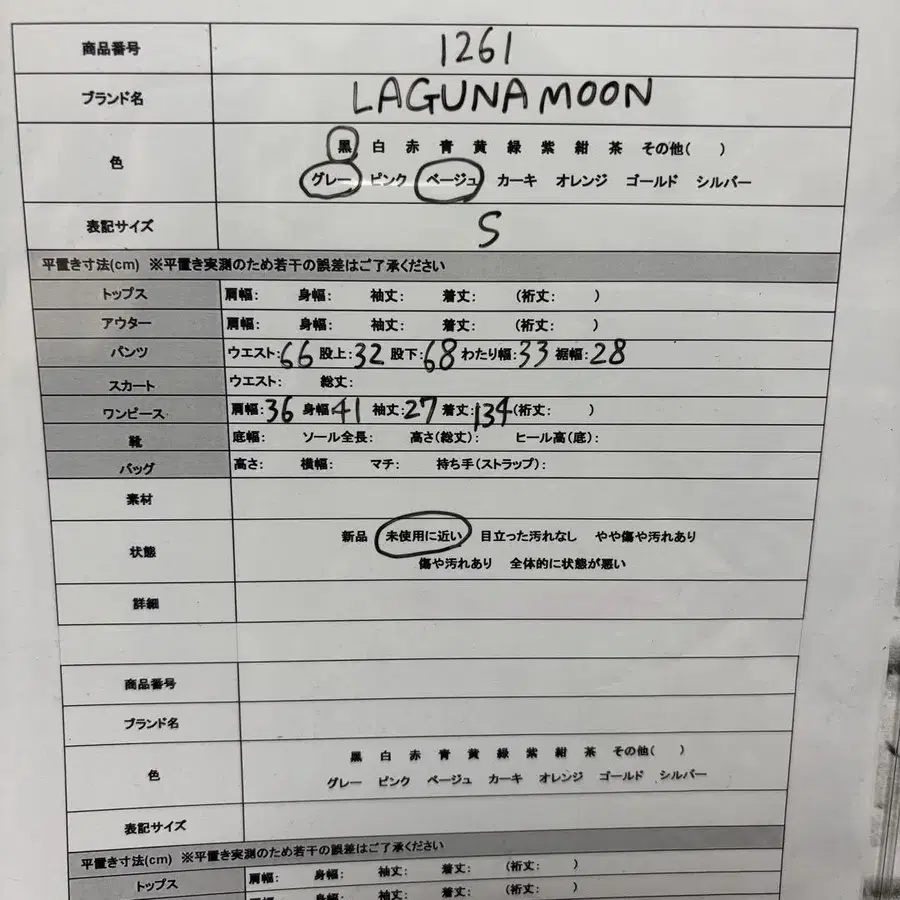 商品番号 1261
ブランド名 LAGUNAMOON
色 黒 白 赤 青 黄 緑 紫 紺 茶 その他( )
グレー ピンク ベージュ カーキ オレンジ ゴールド シルバー
表記サイズ S
平置き寸法(cm) ※平置き実測のため若干の誤差はご了承ください
トップス 肩幅: 身幅: 袖丈: 着丈: (裄丈: )
アウター 肩幅: 身幅: 袖丈: 着丈: (裄丈: )
パンツ ウエスト:66 股上:32 股下:68 わたり幅:33 裾幅:28
スカート ウエスト: 総丈:
ワンピース 肩幅:36 身幅:41 袖丈:27 着丈:134(裄丈: )
靴 底幅: ソール全長: 高さ(総丈): ヒール高(底):
バッグ 高さ: 横幅: マチ: 持ち手(ストラップ):
素材
状態 新品 未使用に近い 目立った汚れなし やや傷や汚れあり
傷や汚れあり 全体的に状態が悪い
詳細
商品番号
ブランド名
色 黒 白 赤 青 黄 緑 紫 紺 茶 その他( )
グレー ピンク ベージュ カーキ オレンジ ゴールド シルバー
表記サイズ
平置き寸法(cm) ※平置き実測のため若干の誤差はご了承ください
トップス 肩幅: 身幅: 袖丈: 着丈: (裄丈: )
肩幅: 身幅: 袖丈: 着丈: (裄丈: )